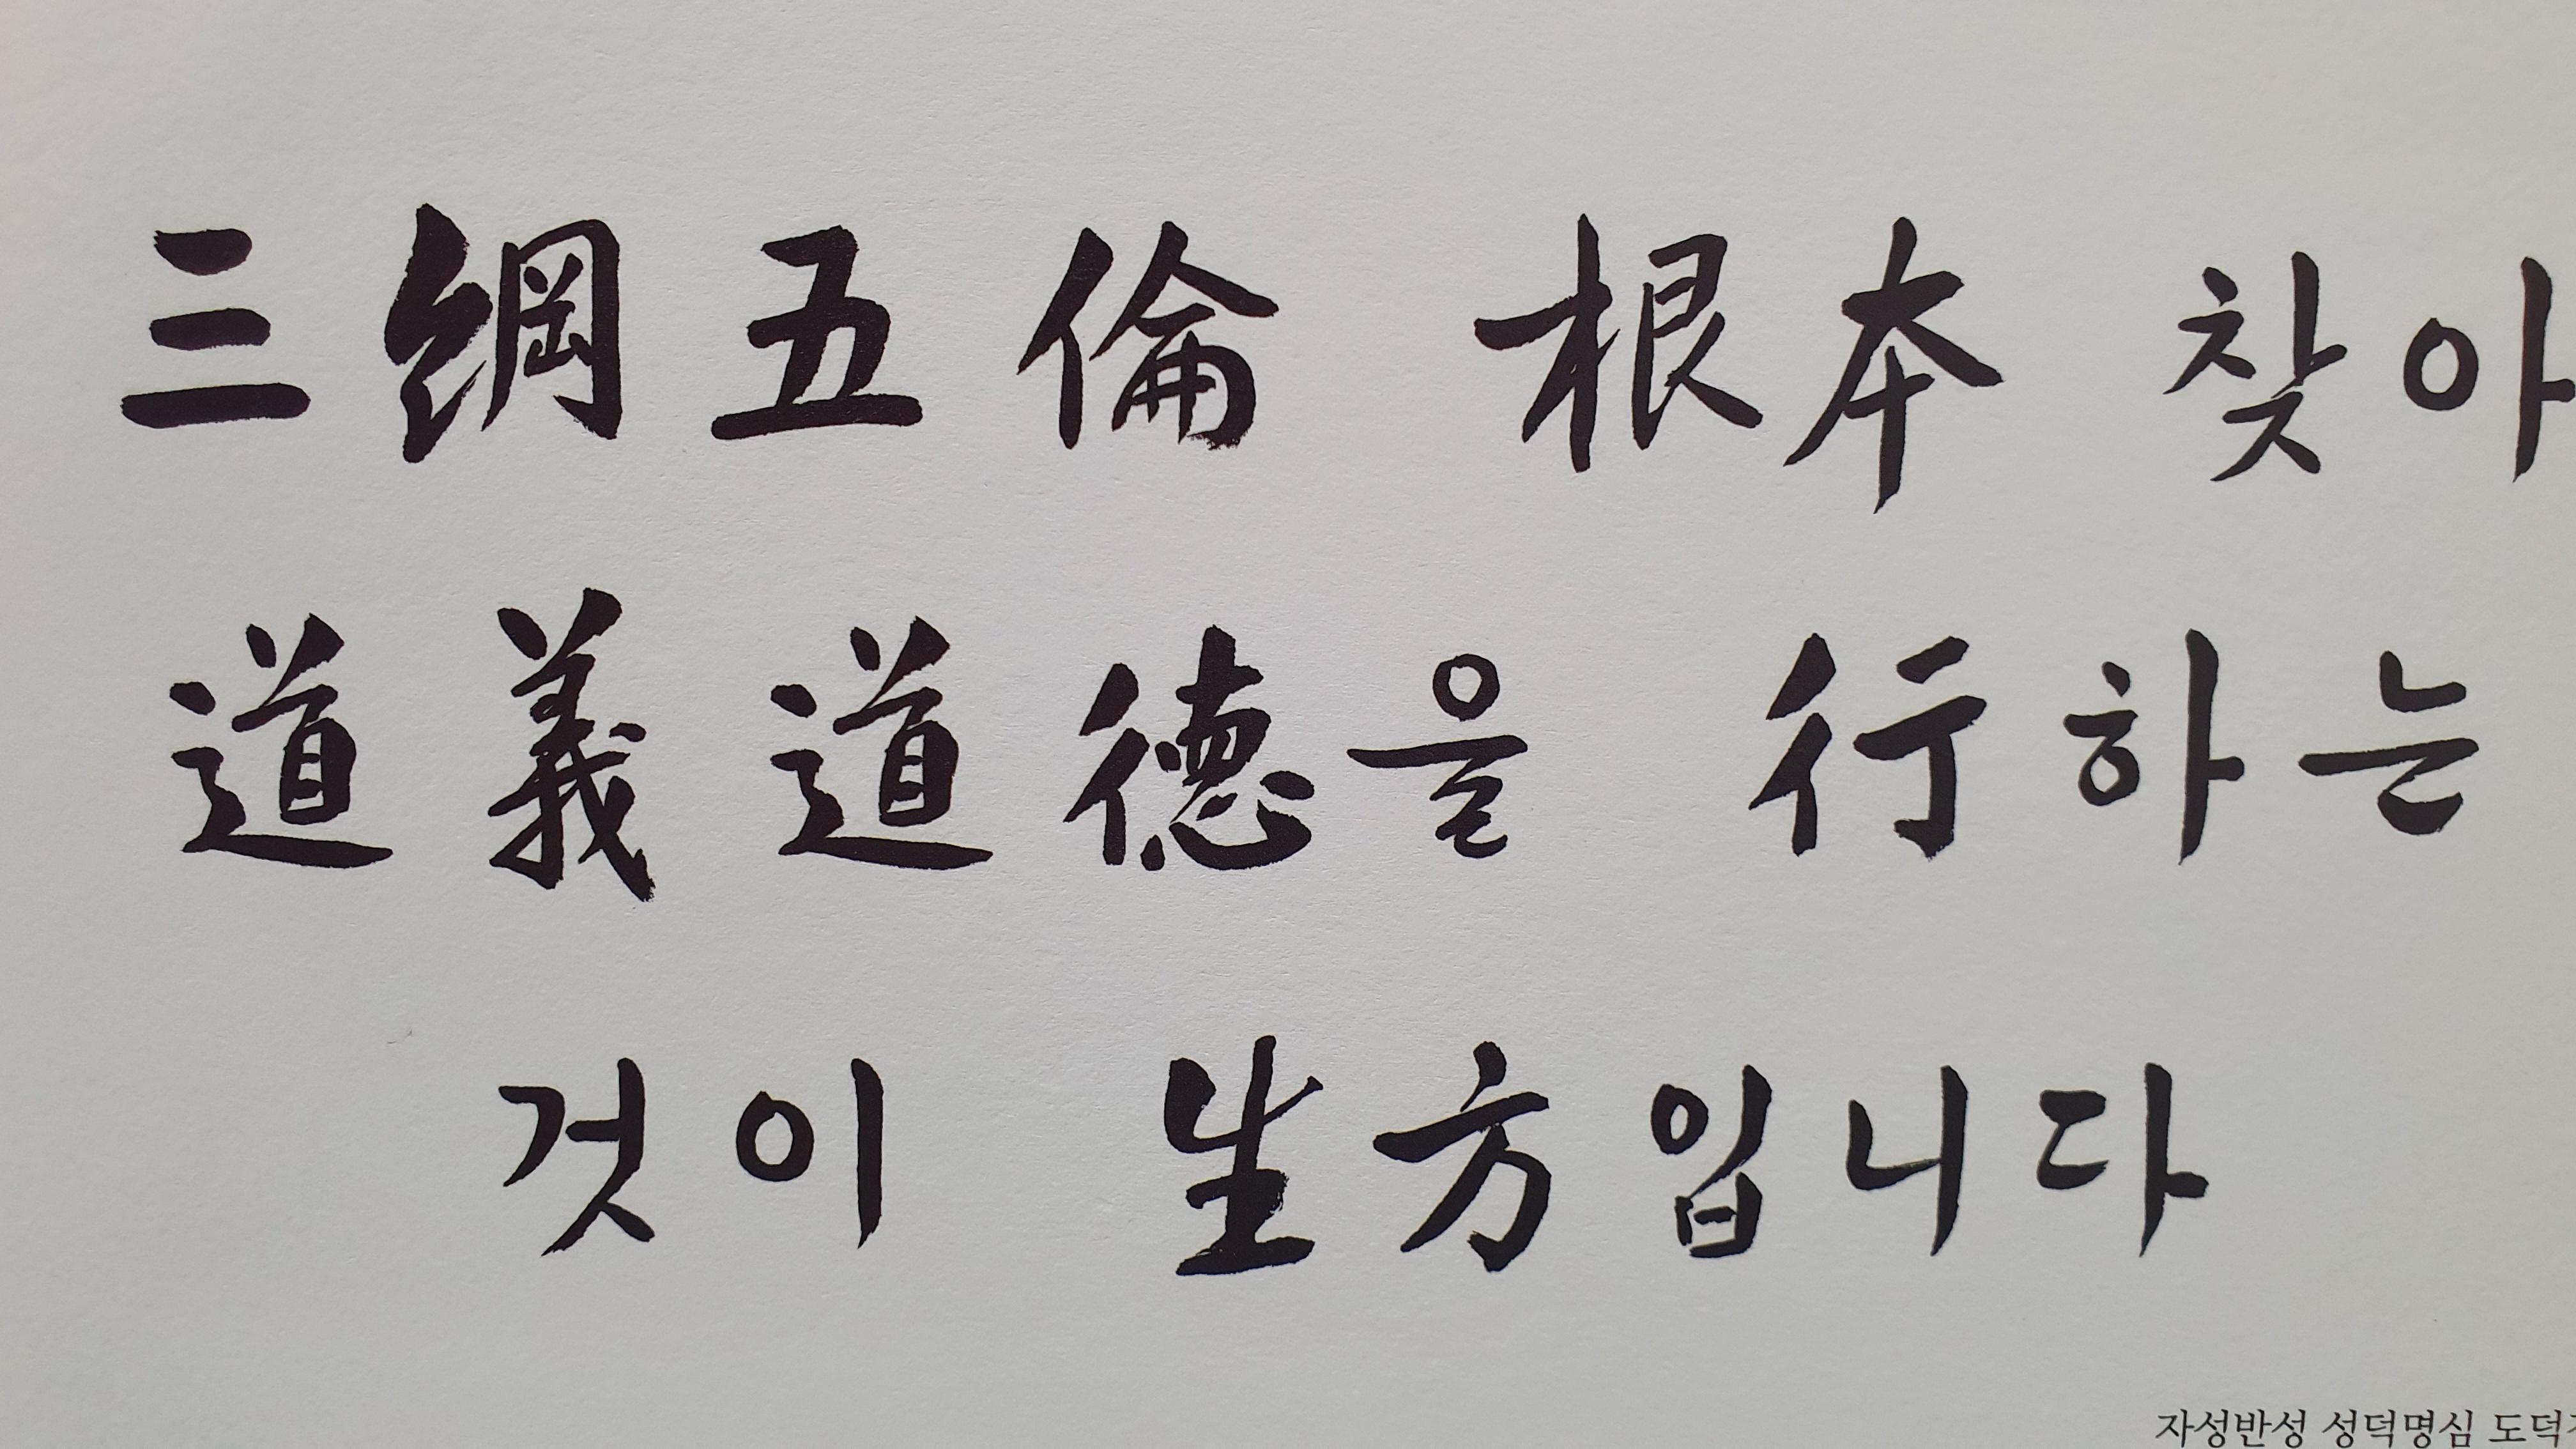 三綱五倫 根本 찾아
道義道德을 行하는
것이 生方입니다
자성반성 성덕명심 도덕